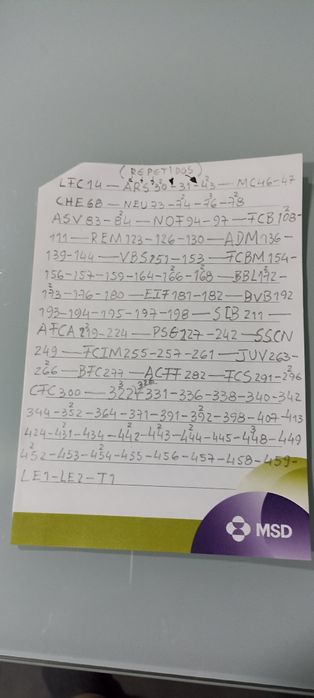 (REPETIDOS)
LFC14 - ARS 30 - 31 - 43 - MC46-47
CHE68 - NEU73-74-76-78
ASV 83-84 - NOF94-97 - FCB108-
111 - REM123-126-130 - ADM136-
139-144 - VBS151-153 - FCBM154-
156-157-159-164-166-168 - BBL172-
173-176-180 - EIF181-182 - BVB192
193-194-195-197-198 - SLB211 -
AFCA219-224 - PSG227-242 - SSCN
249 - FCIM255-257-261 - JUV263-
266 - BFC277 - ACFF282 - FCS291-296
CFC300 - 322 326 331-336-338-340-342
344-352-364-371-391-392-398-407-413
424-431-434-442-443-444-445-448-449
452-453-454-455-456-457-458-459-
LE1-LE2-T1
MSD